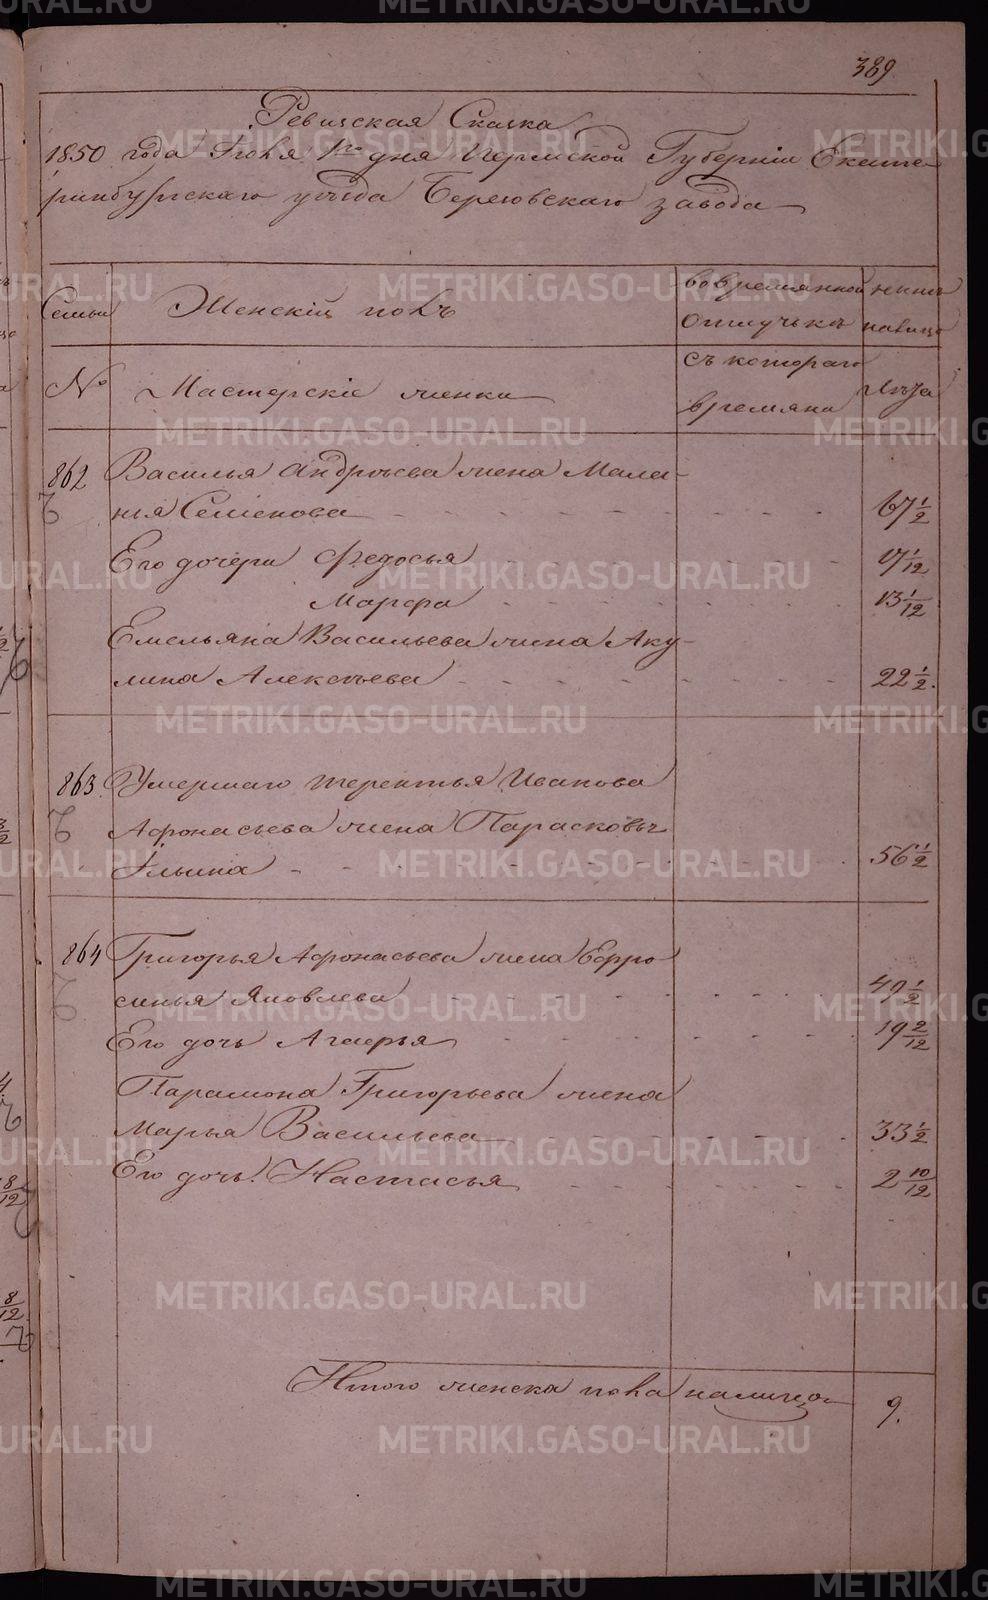 389
Ревизская Сказка
1850 года Іюля 1го дня Пермской Губерніи Екате-
ринбургскаго уѣзда Березовскаго завода
Семьи
Женскій полъ
во временной отлучкѣ
нынѣ налицо
№
Мастерскіе женки
съ котораго времяни
Лѣта
862 Василья Андрѣева жена Мала-
нія Семенова 67 1/2
Его дочери Федосья 17 1/12
Марфа 13 1/12
Емельяна Васильева жена Аку-
лина Алексѣева 22 1/2.
863 Умершаго Терентья Иванова
Афонасьева жена Парасковья
Ильина 56 1/2
864 Григорья Афонасьева жена Ефро
синья Яковлева 47 1/2
Его дочь Агафья 19 2/12
Парамона Григорьева жена
Марья Васильева 33 1/2
Его дочь Настасья 2 10/12
Итого женска пола налицо 9.
METRIKI.GASO-URAL.RU